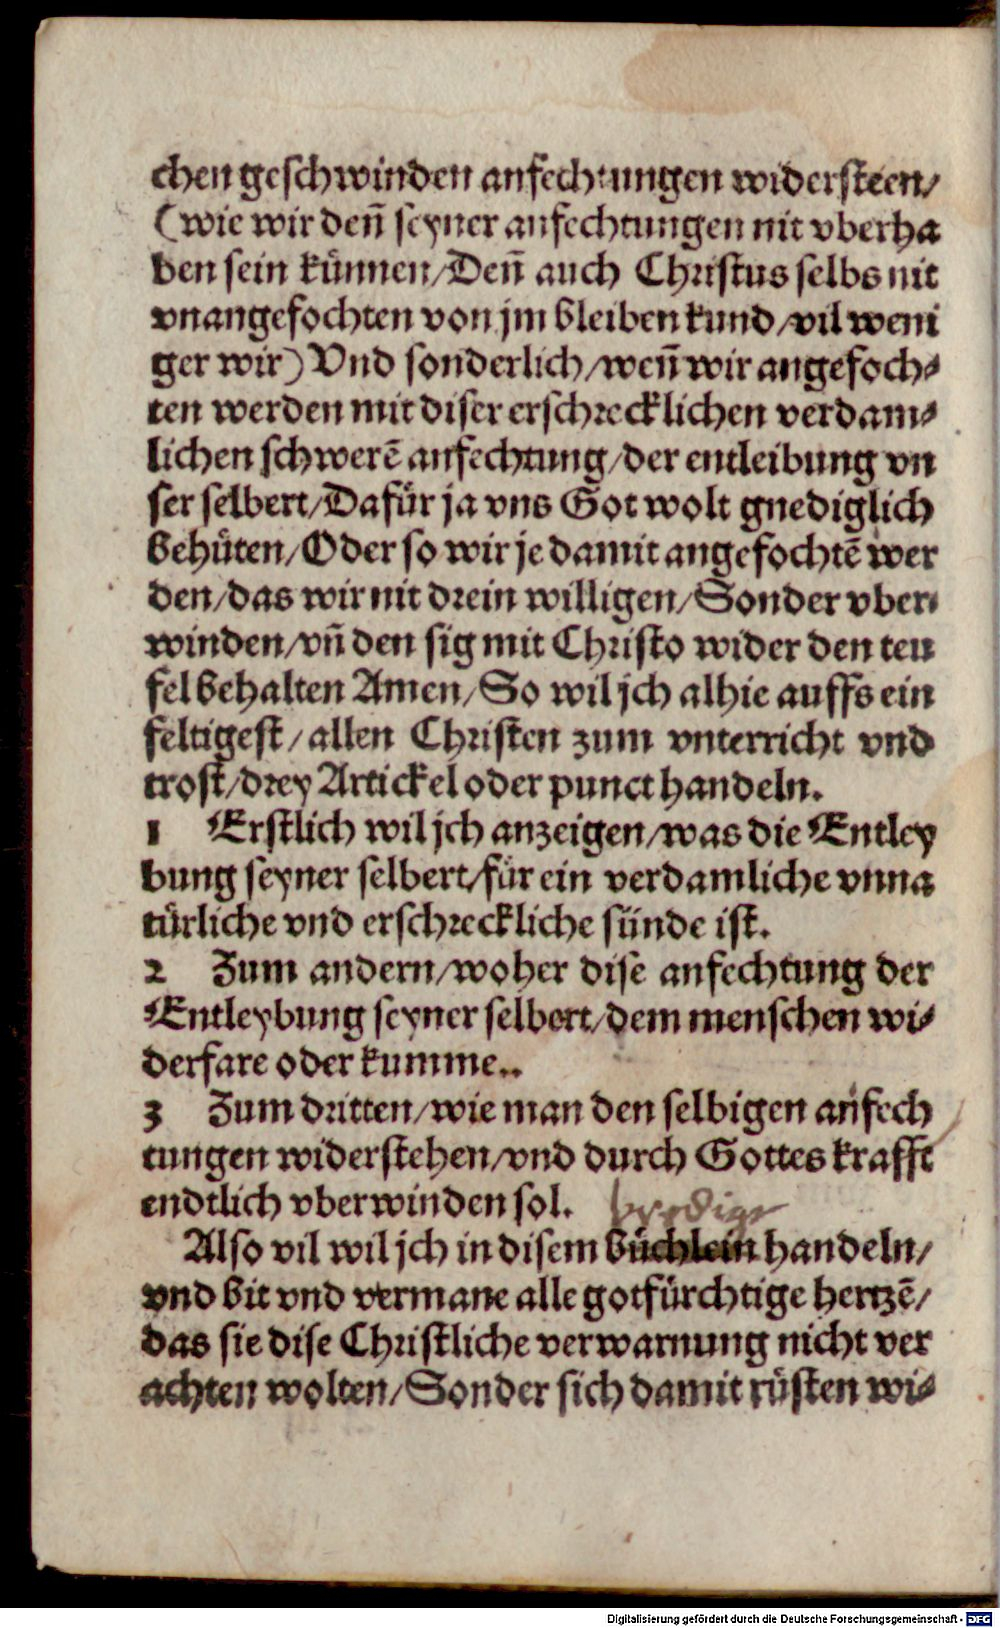 chen geschwinden anfechtungen widersteen/
(wie wir deñ seyner anfechtungen nit vberha
ben sein künnen/Deñ auch Christus selbs nit
vnangefochten von jm bleiben kund/vil weni
ger wir) Vnd sonderlich/weñ wir angefoch⸗
ten werden mit diser erschrecklichen verdam⸗
lichen schwerē anfechtung/der entleibung vn
ser selbert/Dafür ja vns Got wolt gnediglich
behüten/Oder so wir je damit angefochtē wer
den/das wir nit drein willigen/Sonder vber⸗
winden/vñ den sig mit Christo wider den teu
fel behalten Amen/So wil jch alhie auffs ein
feltigest/allen Christen zum vnterricht vnd
trost/drey Artickel oder punct handeln.
1 Erstlich wil jch anzeigen/was die Entley
bung seyner selbert/für ein verdamliche vnna
türliche vnd erschreckliche sünde ist.
2 Zum andern/woher dise anfechtung der
Entleybung seyner selbert/dem menschen wi⸗
derfare oder kumme..
3 Zum dritten/wie man den selbigen anfech
tungen widerstehen/vnd durch Gottes krafft
endtlich vberwinden sol.
predige
Also vil wil jch in disem büchlein handeln/
vnd bit vnd vermane alle gotfürchtige hertzē/
das sie dise Christliche verwarnung nicht ver
achten wolten/Sonder sich damit rüsten wi⸗
Digitalisierung gefördert durch die Deutsche Forschungsgemeinschaft - DFG